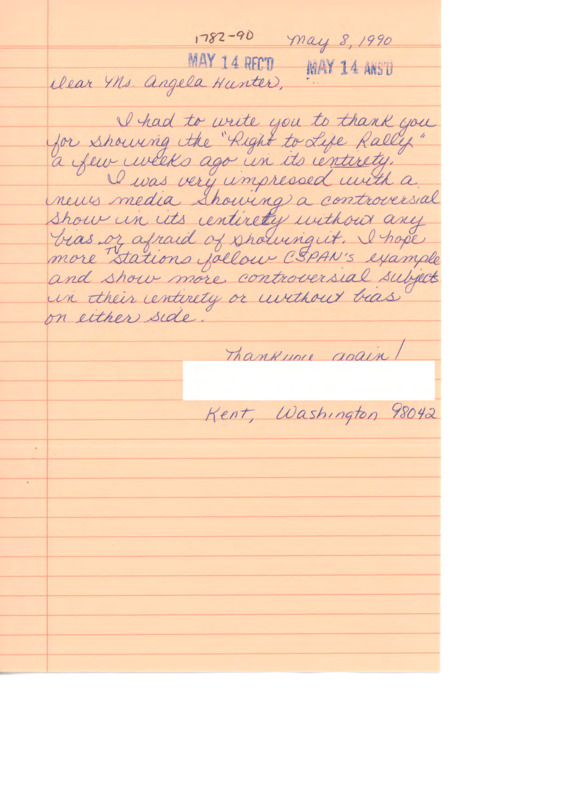 1782-90 May 8, 1990
MAY 14 REC'D MAY 14 ANS'D
Dear Ms. Angela Hunter,
I had to write you to thank you
for showing the "Right to Life Rally"
a few weeks ago in its entirety.
I was very impressed with a
news media showing a controversial
show in its entirety without any
bias or afraid of showing it. I hope
more TV stations follow CSPAN's example
and show more controversial subjects
in their entirety or without bias
on either side.
Thankyou again!
Kent, Washington 98042